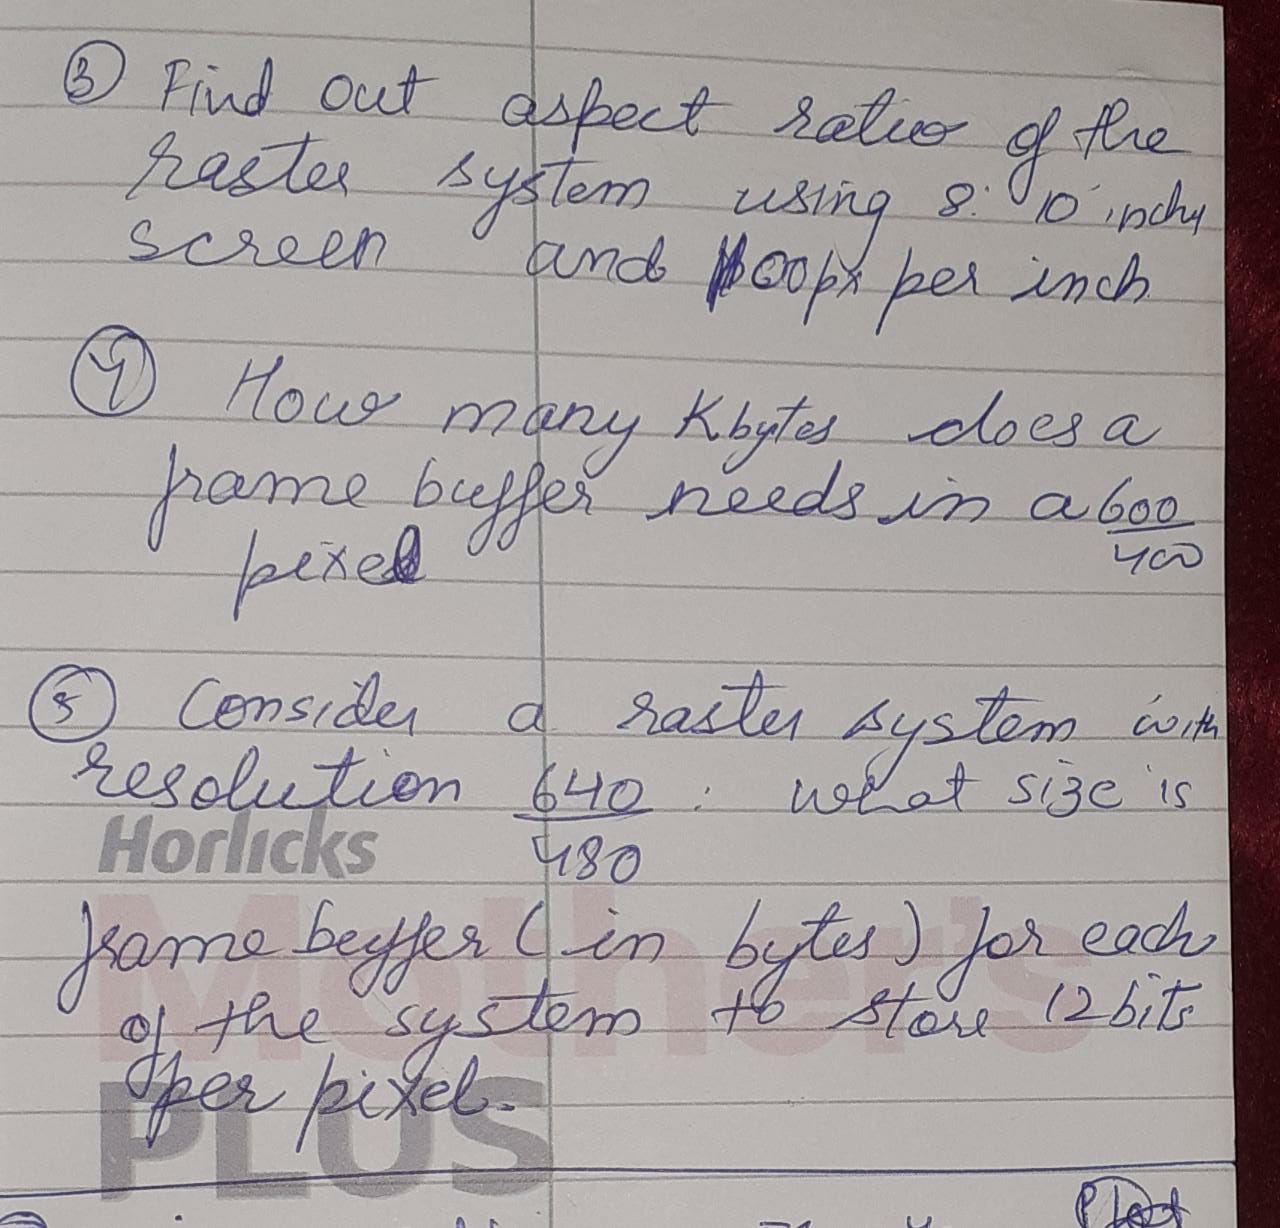 ③ Find out aspect ratio of the
raster system using 8. 10 inch
screen and 100px per inch
④ How many Kbytes does a
frame buffer needs in a 600
400
pixel
⑤ Consider a raster system with
resolution 640 : what size is
480
Horlicks
frame beyffer (in bytes) for each
Mother's
of the system to store 12 bits
per pixel.
PLUS
Plot